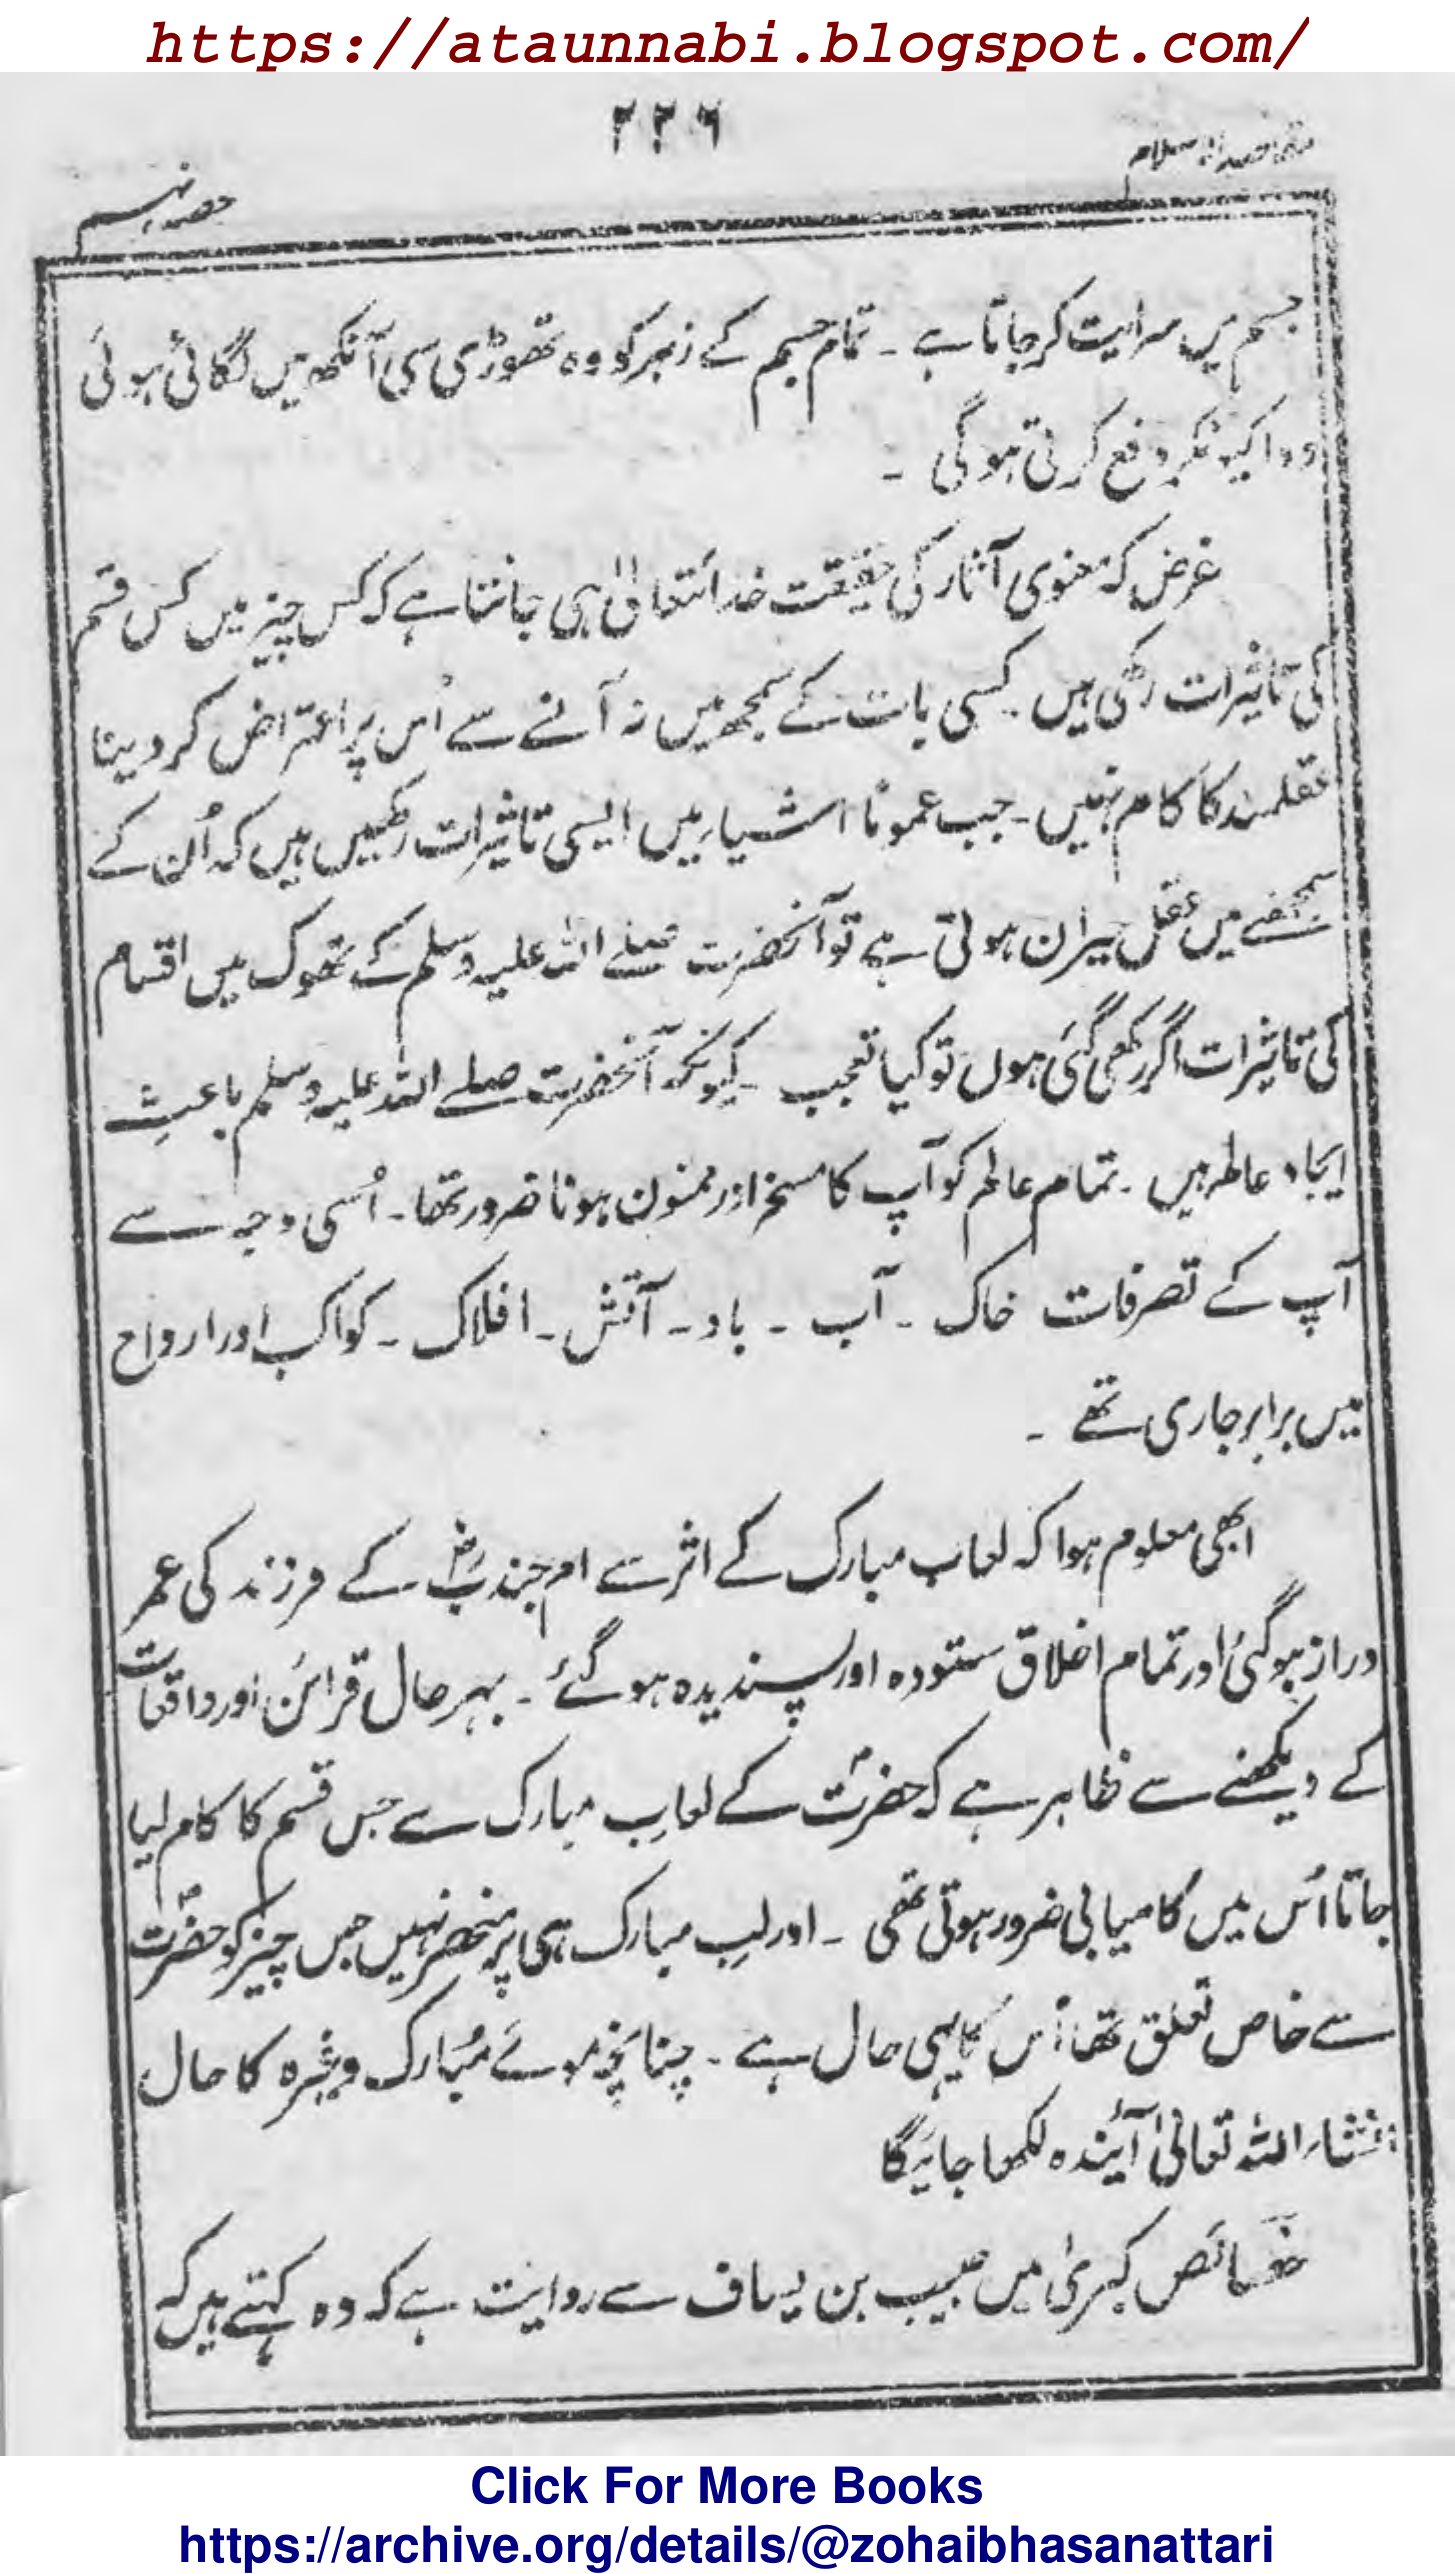 https://ataunnabi.blogspot.com/
۲۲۶
مقاصد الاسلام
حصہ نہم
جسم میں سرایت کرجاتا ہے ۔ تمام جسم کے زہر کو وہ تھوڑی سی آنکھ میں لگائی ہوئی
دوا کیونکر دفع کرتی ہوگی ۔
غرض کہ معنوی آثار کی حقیقت خدائتعالیٰ ہی جانتا ہے کہ کس چیز میں کس قسم
کی تاثیرات رکھی ہیں ۔ کسی بات کے سمجھ میں نہ آنے سے اُس پر اعتراض کردینا
عقلمند کا کام نہیں ۔ جب عموماً اشیاء میں ایسی تاثیرات رکھیں ہیں کہ اُن کے
سمجھنے میں عقل حیران ہوتی ہے تو آنحضرت صلے اللہ علیہ وسلم کے تھوک میں اقسام
کی تاثیرات اگر رکھی گئی ہوں تو کیا تعجب ۔ کیونکہ آنحضرت صلے اللہ علیہ وسلم باعثِ
ایجاد عالم ہیں ۔ تمام عالم کو آپ کا مسخر اور ممنون ہونا ضرور تھا ۔ اُسی وجہ سے
آپ کے تصرفات خاک ۔ آب ۔ باد ۔ آتش ۔ افلاک ۔ کواکب اور ارواح
میں برابر جاری تھے ۔
ابھی معلوم ہوا کہ لعاب مبارک کے اثر سے ام جندبؓ کے فرزند کی عمر
دراز ہوگئی اور تمام اخلاق ستودہ اور پسندیدہ ہوگئے ۔ بہرحال قرائن اور واقعات
کے دیکھنے سے ظاہر ہے کہ حضرتؐ کے لعابِ مبارک سے جس قسم کا کام لیا
جاتا اُس میں کامیابی ضرور ہوتی تھی ۔ اور لبِ مبارک ہی پر منحصر نہیں جس چیز کو حضرتؐ
سے خاص تعلق تھا اُس کا یہی حال ہے ۔ چنانچہ موئے مُبارک وغیرہ کا حال
انشاء اللہ تعالیٰ آیندہ لکھا جائیگا
خصائص کبریٰ میں حبیب بن یساف سے روایت ہے کہ وہ کہتے ہیں کہ
Click For More Books
https://archive.org/details/@zohaibhasanattari